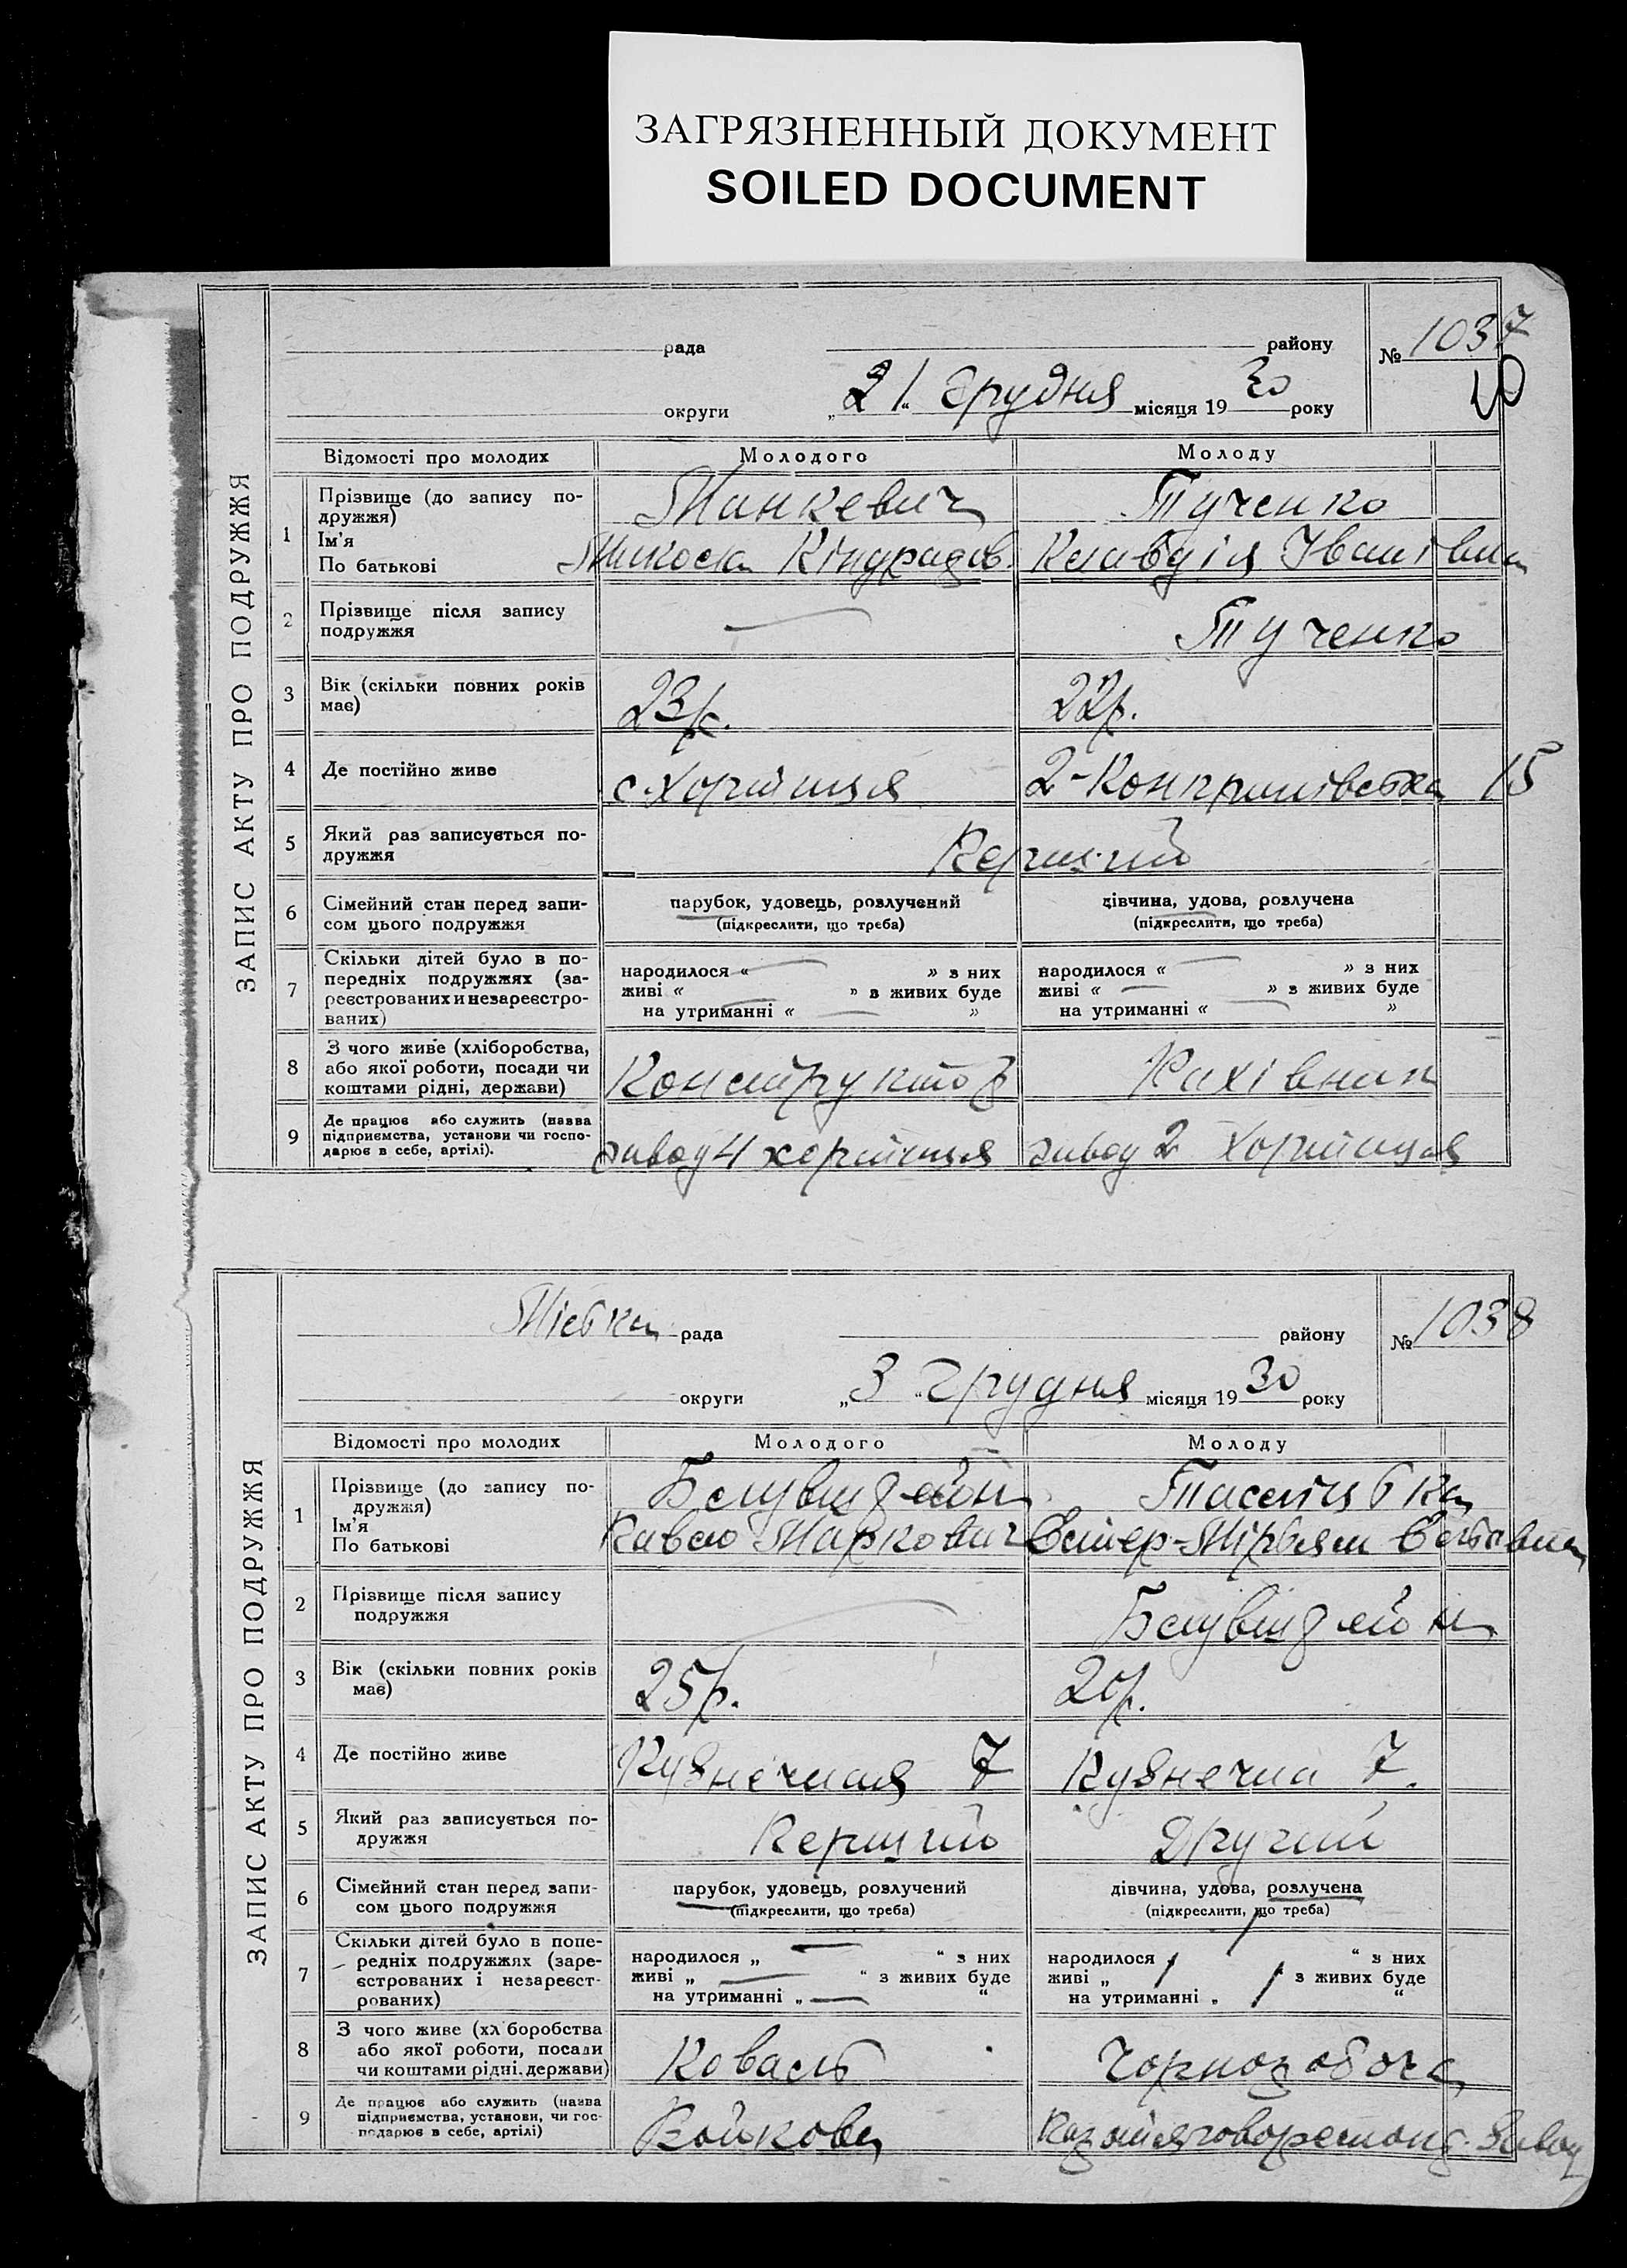 ЗАГРЯЗНЕННЫЙ ДОКУМЕНТ
SOILED DOCUMENT
ЗАПИС АКТУ ПРО ПОДРУЖЖЯ
рада району
№ 1037
20
округи „21“ Грудня місяця 1930 року
Відомості про молодих Молодого Молоду
1 Прізвище (до запису по-
дружжя)
Ім'я
По батькові
Манкевич Тученко
Микола Кіндратов. Клавдія Іванівна
2 Прізвище після запису
подружжя
— Тученко
3 Вік (скільки повних років
має)
23р. 22р.
4 Де постійно живе с. Хортиця 2- 15
5 Який раз записується по-
дружжя
Перший
6 Сімейний стан перед запи-
сом цього подружжя
парубок, удовець, розлучений
(підкреслити, що треба)
дівчина, удова, розлучена
(підкреслити, що треба)
7 Скільки дітей було в по-
передніх подружжях (за-
реєстрованих и незареєстро-
ваних)
народилося « — » з них
живі « — » з живих буде
на утриманні « — »
народилося « — » з них
живі « — » з живих буде
на утриманні « — »
8 З чого живе (хліборобства,
або якої роботи, посади чи
коштами рідні, держави)
Конструктор Рахівник
9 Де працює або служить (назва
підприємства, установи чи госпо-
дарює в себе, артілі).
завод 4 Хортиця завод 2 Хортиця
ЗАПИС АКТУ ПРО ПОДРУЖЖЯ
Міська рада району
№ 1038
округи „3“ Грудня місяця 1930 року
Відомості про молодих Молодого Молоду
1 Прізвище (до запису по-
дружжя)
Ім'я
По батькові
Маркович Естер-Мірьям
2 Прізвище після запису
подружжя
—
3 Вік (скільки повних років
має)
25р. 20р.
4 Де постійно живе Кузнечная 7 Кузнечна 7.
5 Який раз записується по-
дружжя
Перший Другий
6 Сімейний стан перед запи-
сом цього подружжя
парубок, удовець, розлучений
(підкреслити, що треба)
дівчина, удова, розлучена
(підкреслити, що треба)
7 Скільки дітей було в попе-
редніх подружжях (заре-
єстрованих і незареєст-
рованих)
народилося „ — “ з них
живі „ — “ з живих буде
на утриманні „ — “
народилося / “ з них
живі „ / / з живих буде
на утриманні „ / “
8 З чого живе (хл боробства
або якої роботи, посади
чи коштами рідні, держави)
Коваль Чорнороботча
9 Де працює або служить (назва
підприємства, установи, чи гос-
подарює в себе, артілі)
Войкова завод